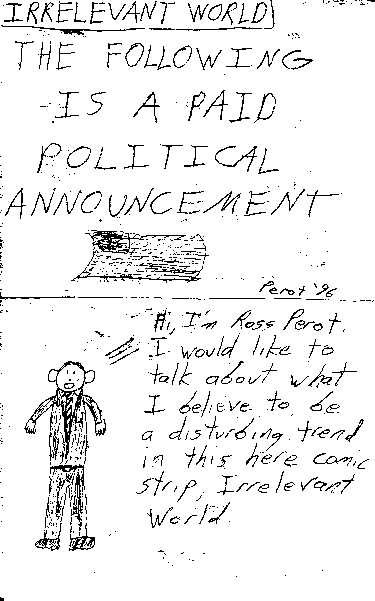 IRRELEVANT WORLD
THE FOLLOWING
IS A PAID
POLITICAL
ANNOUNCEMENT
Perot '96
Hi, I'm Ross Perot.
I would like to
talk about what
I believe to be
a disturbing trend
in this here comic
strip, Irrelevant
World.